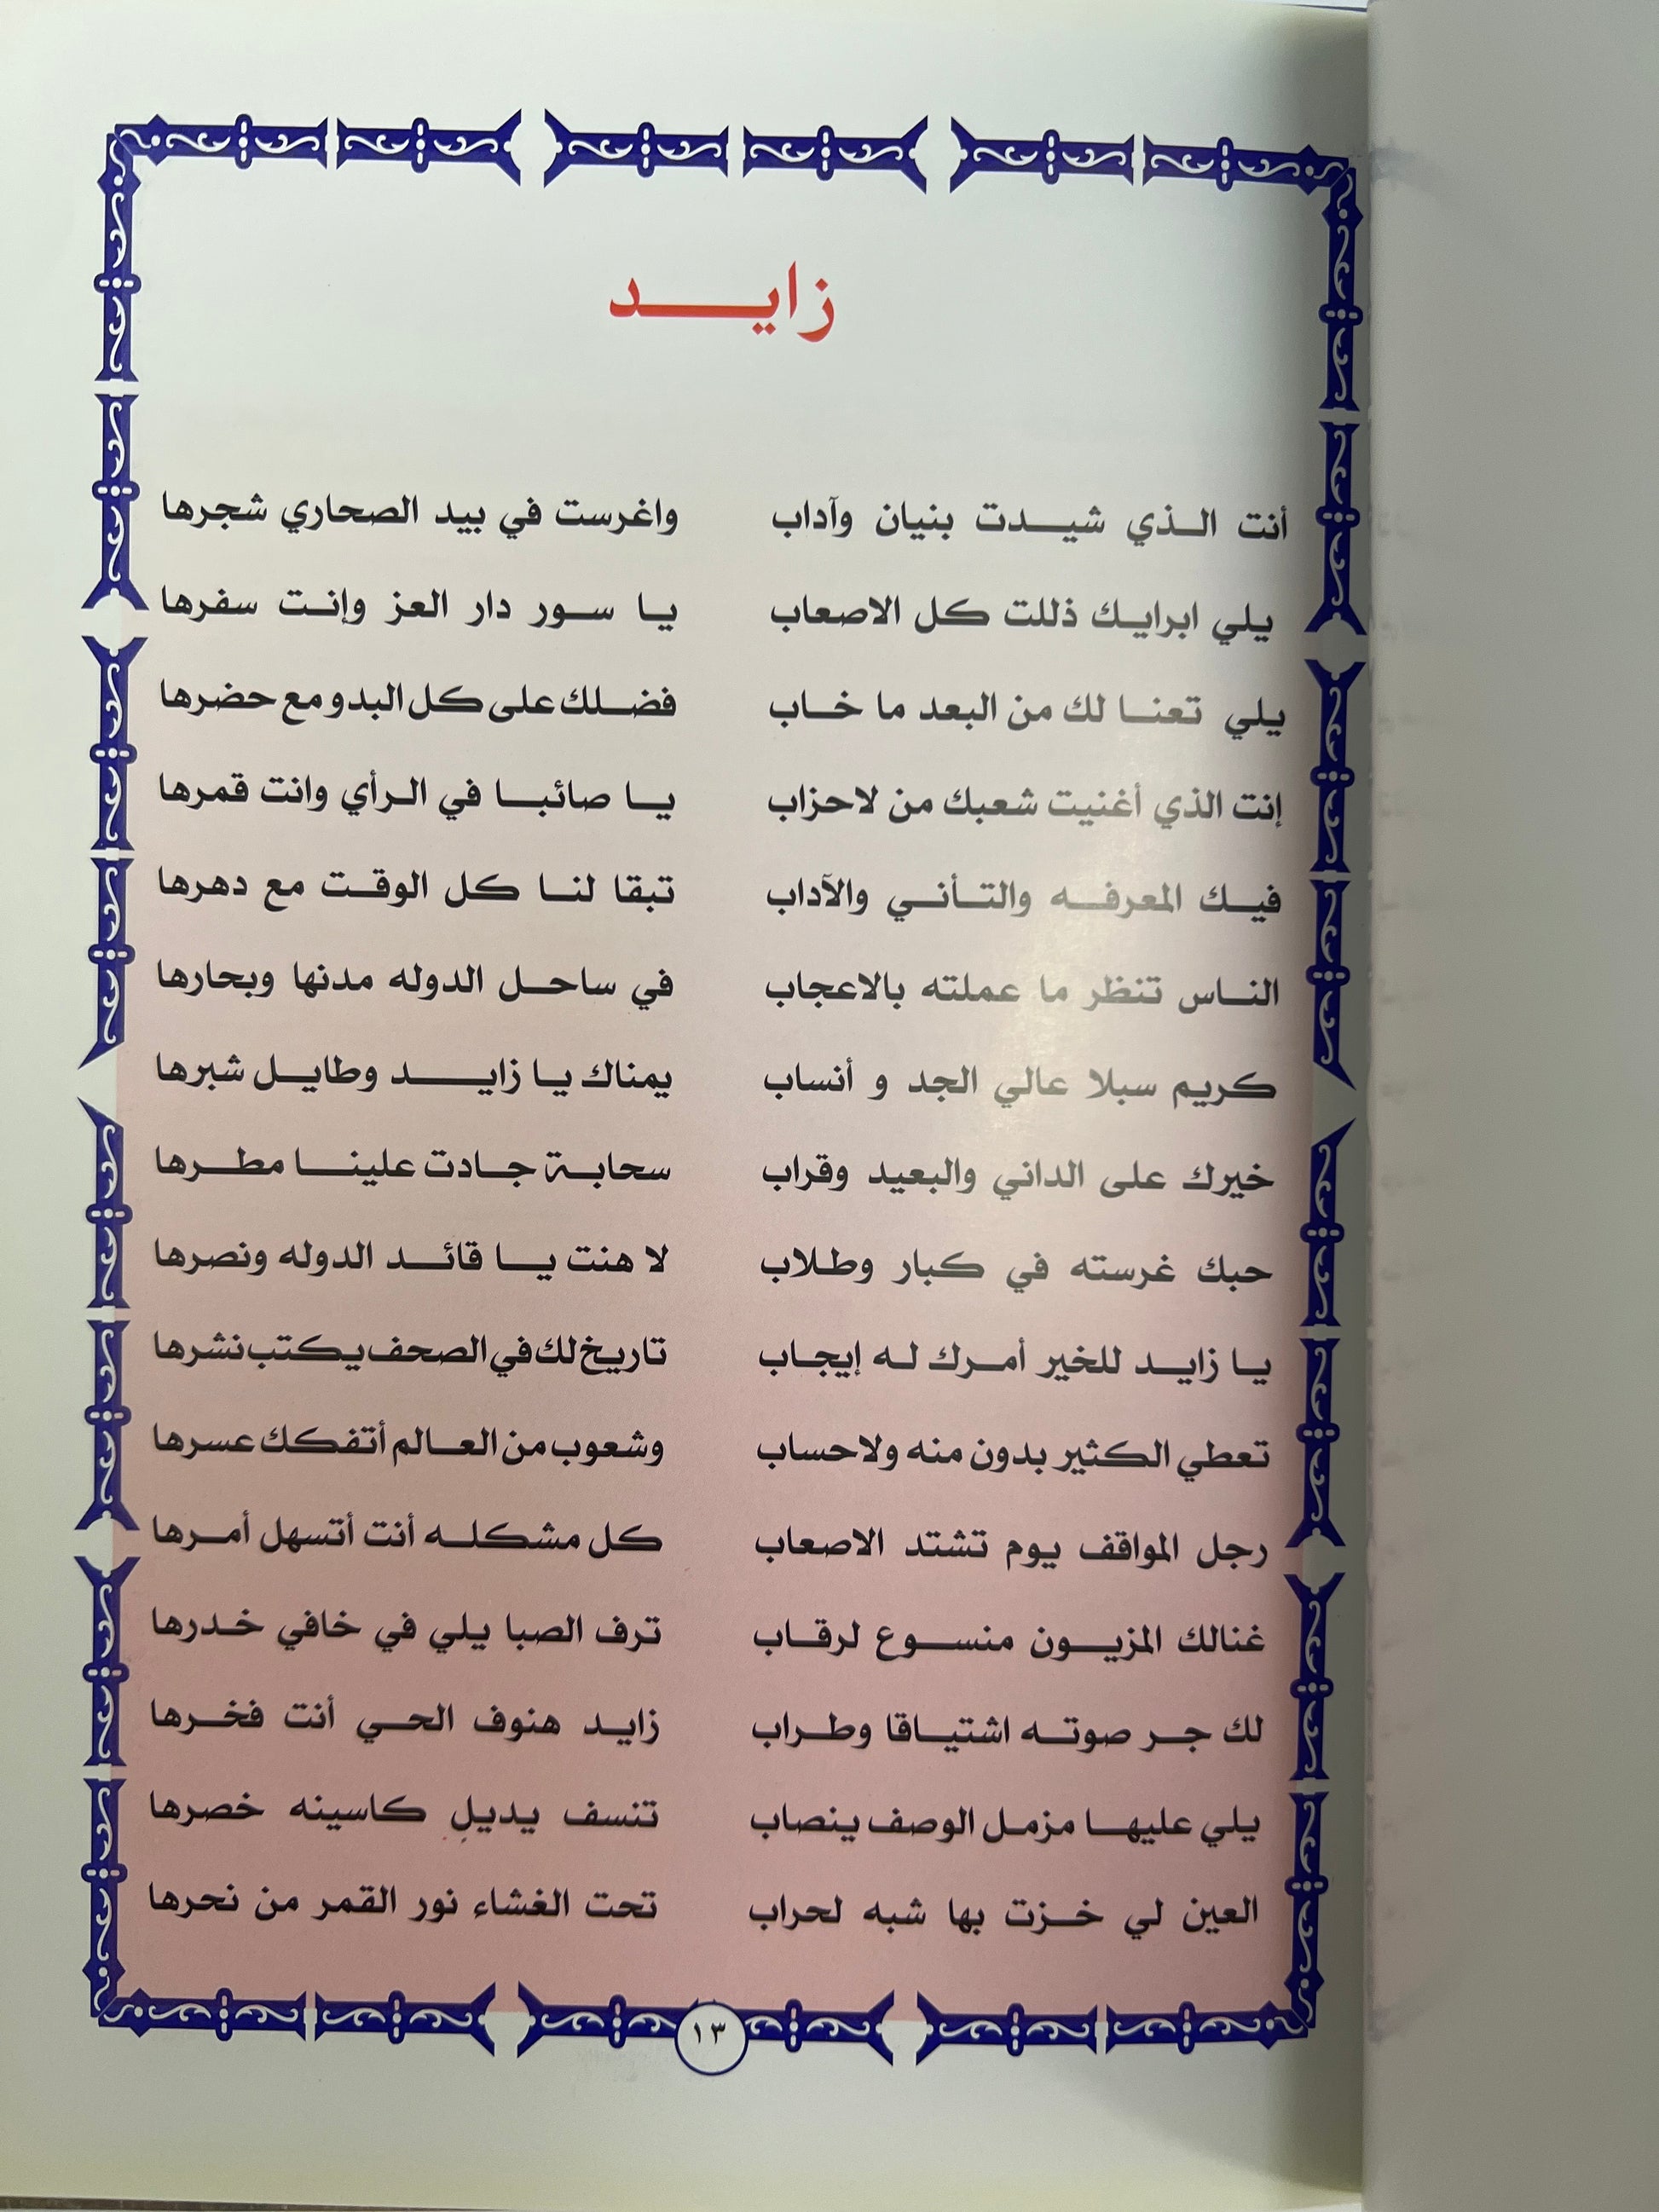 زايـــــد
أنت الـذي شيـدت بنيان وآداب واغرست في بيد الصحاري شجرها
يلي ابرايـك ذللت كل الاصعاب يـا سـور دار العز وإنـت سفرها
يلي تعنـا لك من البعد ما خـاب فضـلك على كل البدو مع حضرها
إنت الذي أغنيت شعبك من لاحزاب يـا صائبـا في الـرأي وانت قمرها
فيـك المعرفـه والتـأنـي والآداب تبقا لنـا كل الوقـت مع دهرها
النـاس تنظر ما عملته بالاعجاب في ساحـل الدوله مدنها وبحارها
كريم سبلا عالي الجد و أنساب يمناك يـا زايـــد وطايـل شبرها
خيرك على الداني والبعيد وقراب سحابـة جـادت علينـا مطـرها
حبك غرسته في كبار وطـلاب لا هنت يـا قائـد الدوله ونصرها
يـا زايـد للخير أمـرك لـه إيجـاب تاريخ لك في الصحف يكتب نشرها
تعطي الكثير بدون منه ولاحساب وشعوب من العـالم أتفكك عسرها
رجل المواقف يوم تشتد الاصعاب كل مشكلـه أنت أتسهل أمـرها
غنالك المزيـون منسـوع لرقـاب ترف الصبا يلي في خافي خـدرها
لك جـر صوتـه اشتيـاقا وطـراب زايـد هنوف الحـي أنت فخـرها
يلي عليهـا مزمـل الوصف ينصاب تنسف يديل كاسينه خصرها
العين لي خـزت بها شبه لحراب تحت الغشاء نور القمر من نحرها
١٣